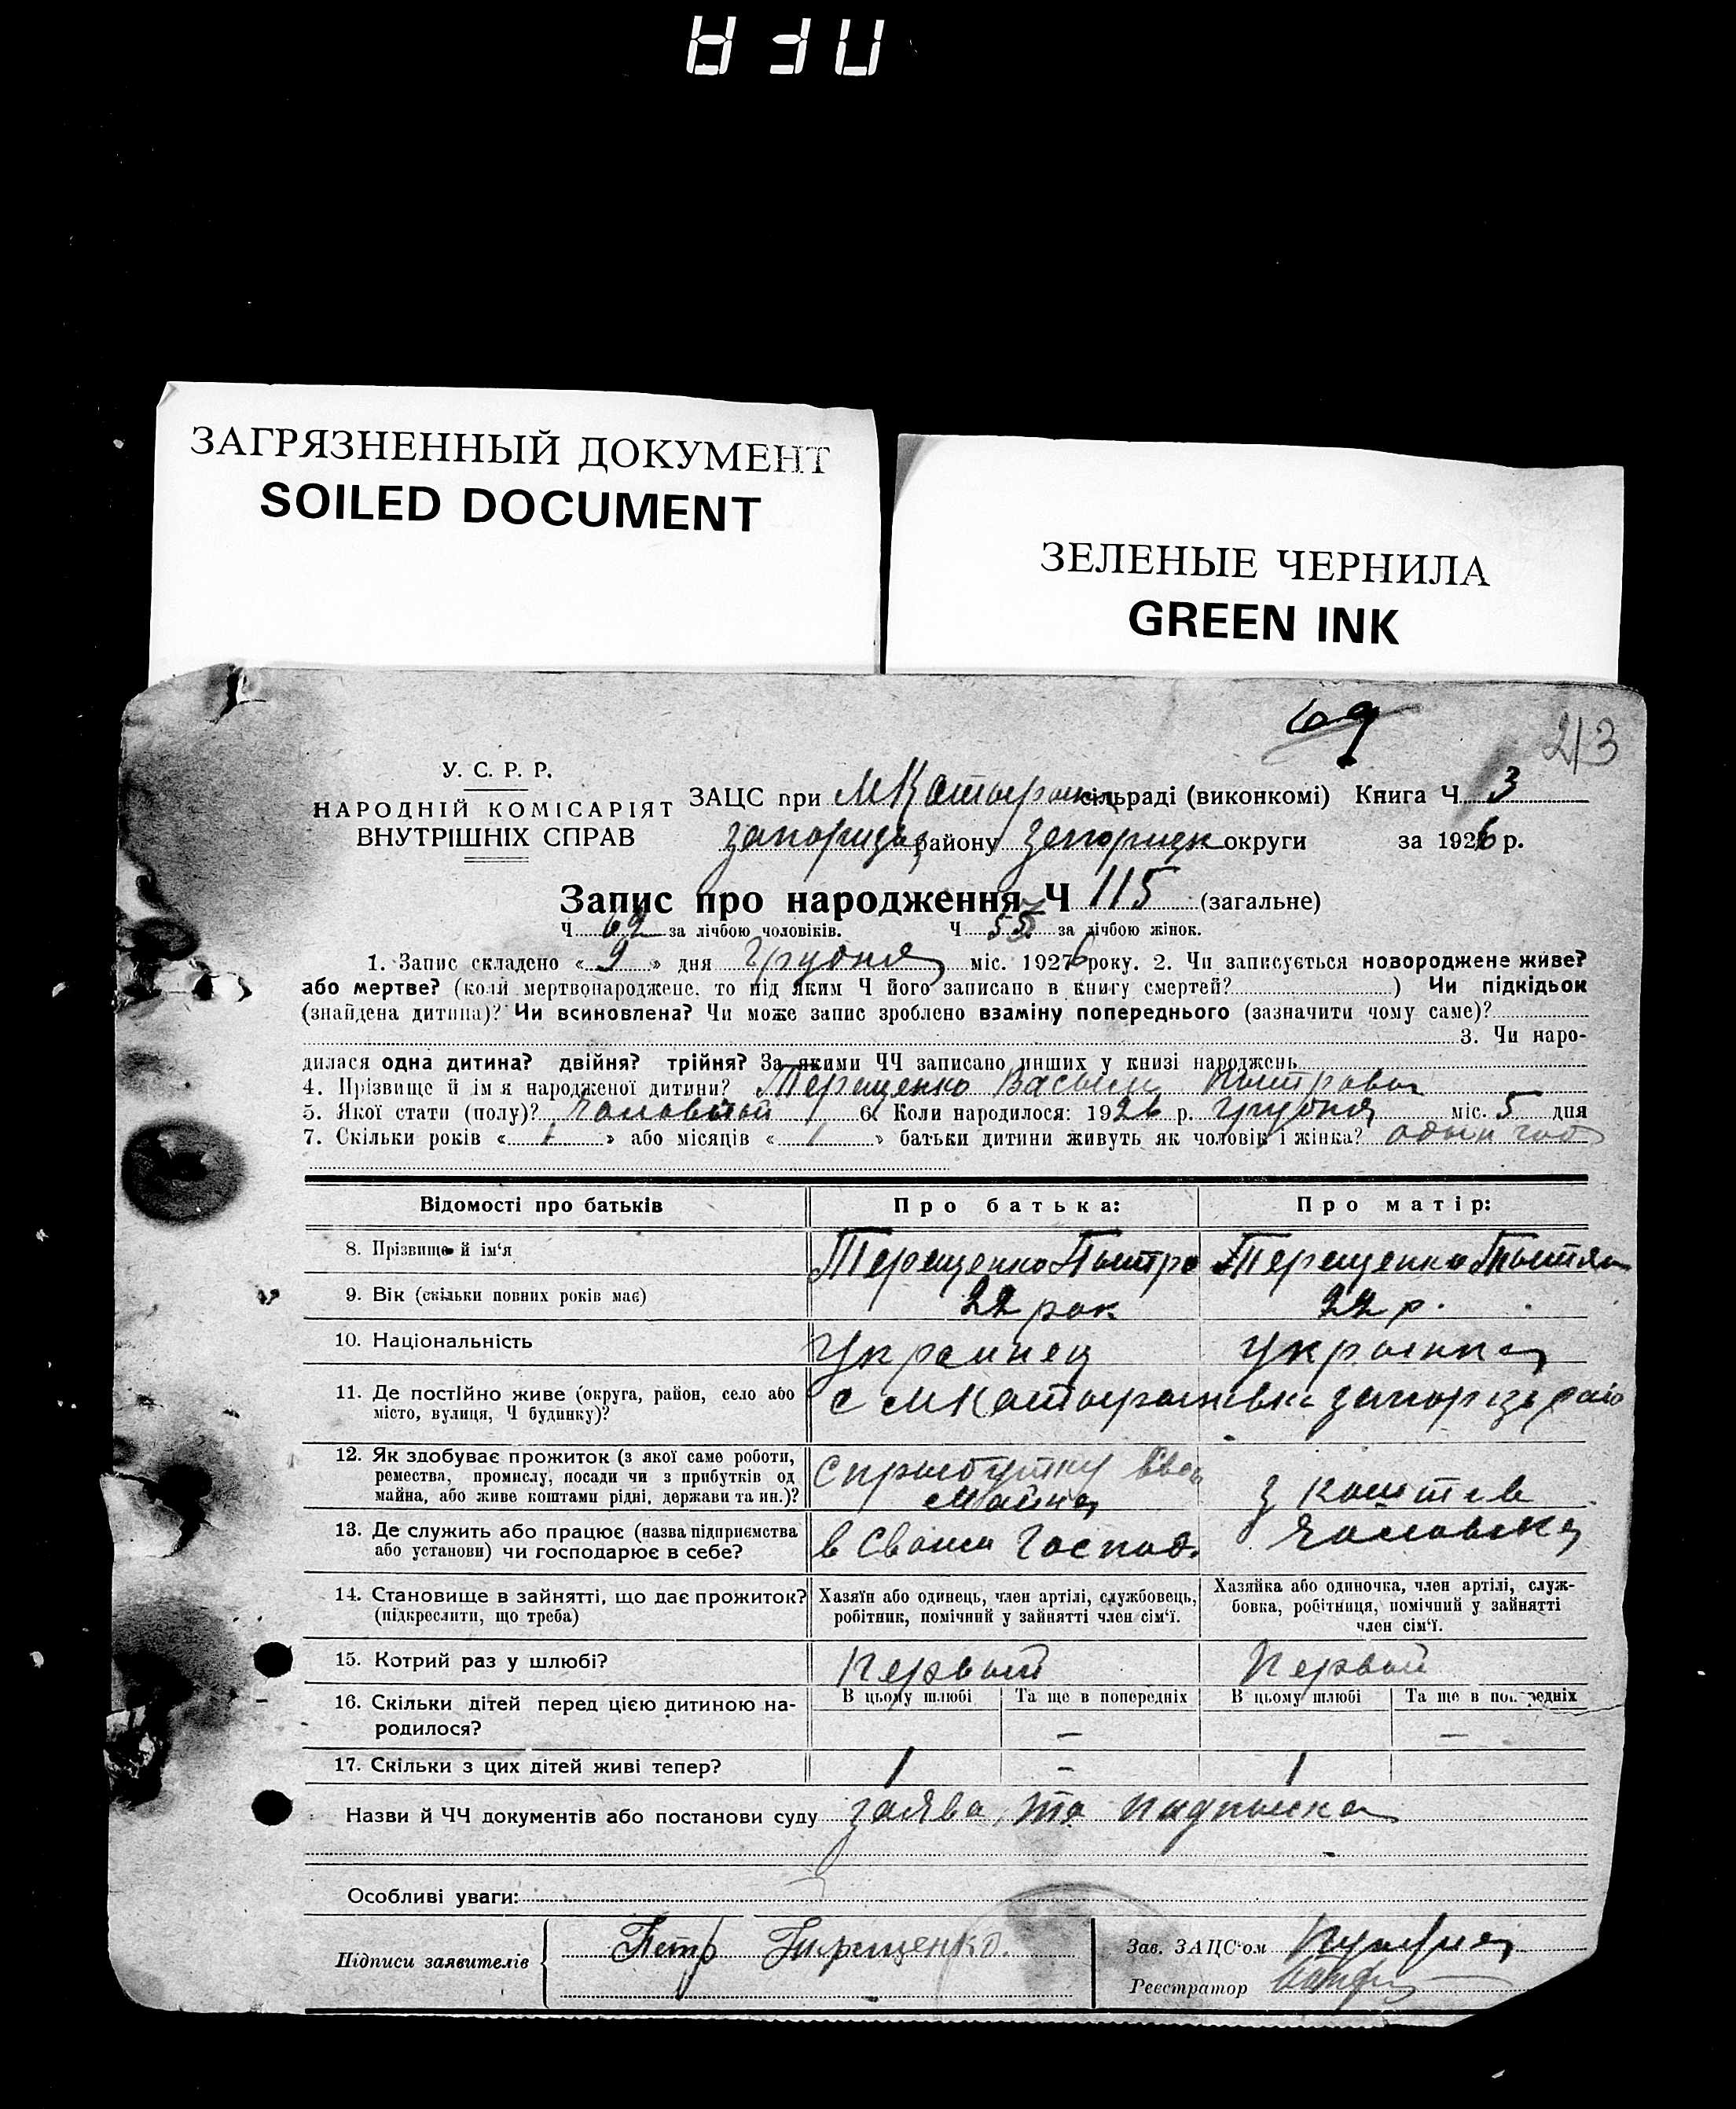 ЗАГРЯЗНЕННЫЙ ДОКУМЕНТ
SOILED DOCUMENT
ЗЕЛЕНЫЕ ЧЕРНИЛА
GREEN INK
69
213
У. С. Р. Р.
НАРОДНІЙ КОМІСАРІЯТ
ВНУТРІШНІХ СПРАВ
ЗАЦС при сільраді (виконкомі) Книга Ч. 3
району округи за 1926 р.
Запис про народження Ч 115 (загальне)
Ч 62 за лічбою чоловіків. Ч за лічбою жінок.
1. Запис складено « 9 » дня Грудня міс. 1926 року. 2. Чи записується новороджене живе?
або мертве? (коли мертвонароджене, то під яким Ч його записано в книгу смертей? ) Чи підкідьок
(знайдена дитина)? Чи всиновлена? Чи може запис зроблено взаміну попереднього (зазначити чому саме)?
3. Чи наро-
дилася одна дитина? двійня? трійня? За якими ЧЧ записано инших у книзі народжень
4. Прізвище й ім'я народженої дитини? Терещенко Васыль
5. Якої стати (полу)? 6. Коли народилося: 1926 р. Грудня міс. 5 дня
7. Скільки років « 1 » або місяців « / » батьки дитини живуть як чоловік і жінка? один год
Відомості про батьків Про батька: Про матір:
8. Прізвище й ім'я Терещенко Пытро Терещенко
9. Вік (скільки повних років має) 22 рок 22 р.
10. Національність Украинец Украинка
11. Де постійно живе (округа, район, село або
місто, вулиця, Ч будинку)? с
12. Як здобуває прожиток (з якої саме роботи,
ремества, промислу, посади чи з прибутків од
майна, або живе коштами рідні, держави та ин.)? с прыбутку майна з коштів
13. Де служить або працює (назва підприємства
або установи) чи господарює в себе? в своем господ. чоловіка
14. Становище в зайнятті, що дає прожиток?
(підкреслити, що треба)
Хазяїн або одинець, член артілі, службовець,
робітник, помічний у зайнятті член сім'ї.
Хазяйка або одиночка, член артілі, служ-
бовка, робітниця, помічний у зайнятті
член сім'ї.
15. Котрий раз у шлюбі? первый первый
16. Скільки дітей перед цією дитиною на-
родилося?
В цьому шлюбі Та ще в попередніх В цьому шлюбі Та ще в попередніх
— —
17. Скільки з цих дітей живі тепер? 1 – 1
Назви й ЧЧ документів або постанови суду заява та
Особливі уваги:
Підписи заявителів Петр Тирещенко. Зав. ЗАЦС'ом
Реєстратор